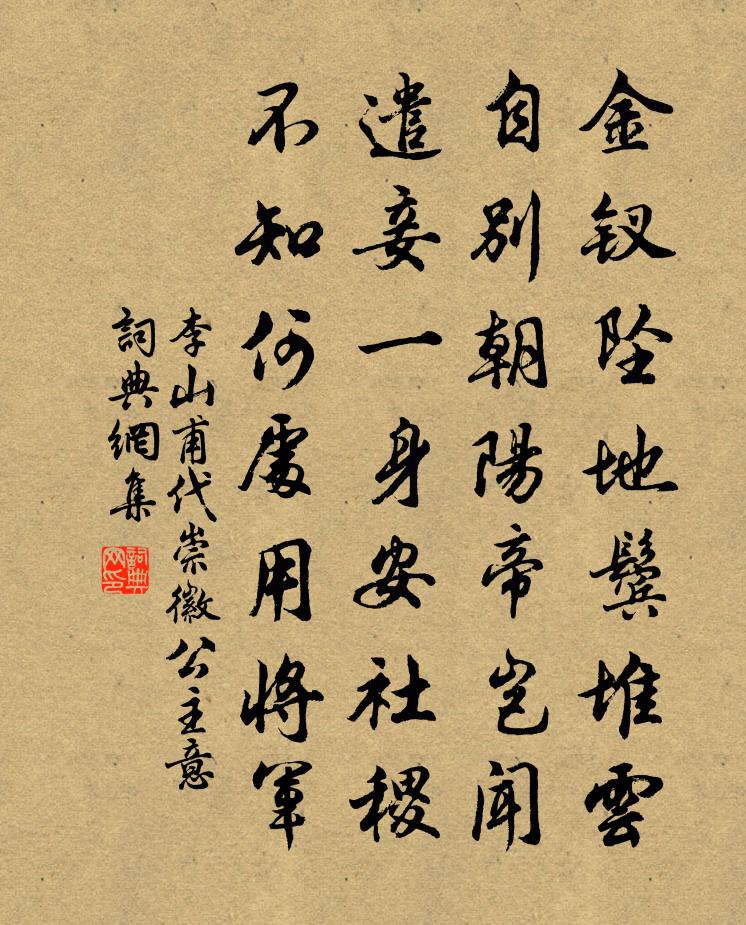 金钗坠地鬓堆雲
自别朝陽帝岂闻
遣妾一身安社稷
不知何處用将軍
李山甫代崇徽公主意
詞典網集
詞典網印